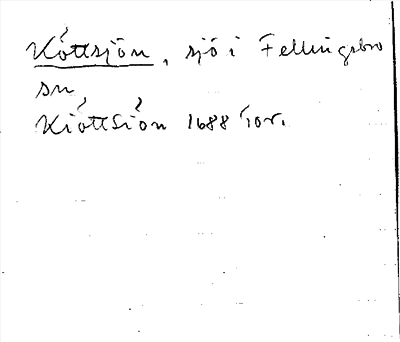 Köttsjön, sjö i Fellingsbro
sn
Kiöttsiön 1688 Jor.